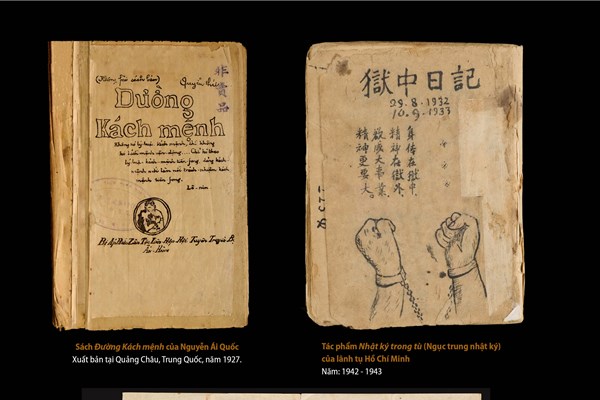 (Không fải sách bán)
Quyển thứ
非賣品
Đường
Kách mệnh
Không có lý luận kách mệnh, thì không
có kách mệnh vận động... Chỉ có theo
lý luận kách mệnh tiền fong, đảng kách
mệnh mới làm nổi trách nhiệm kách
mệnh tiền fong.
Lê-nin
Bị Áp Bức Dân Tộc Liên Hợp Hội Tuyên Truyền Bộ
Ấn Hành
Sách Đường Kách mệnh của Nguyễn Ái Quốc
Xuất bản tại Quảng Châu, Trung Quốc, năm 1927.
獄中日記
29.8.1932
10.9.1933
身体在獄中,
精神在獄外,
欲成大事業,
精神更要大。
Tác phẩm Nhật ký trong tù (Ngục trung nhật ký)
của lãnh tụ Hồ Chí Minh
Năm: 1942 - 1943